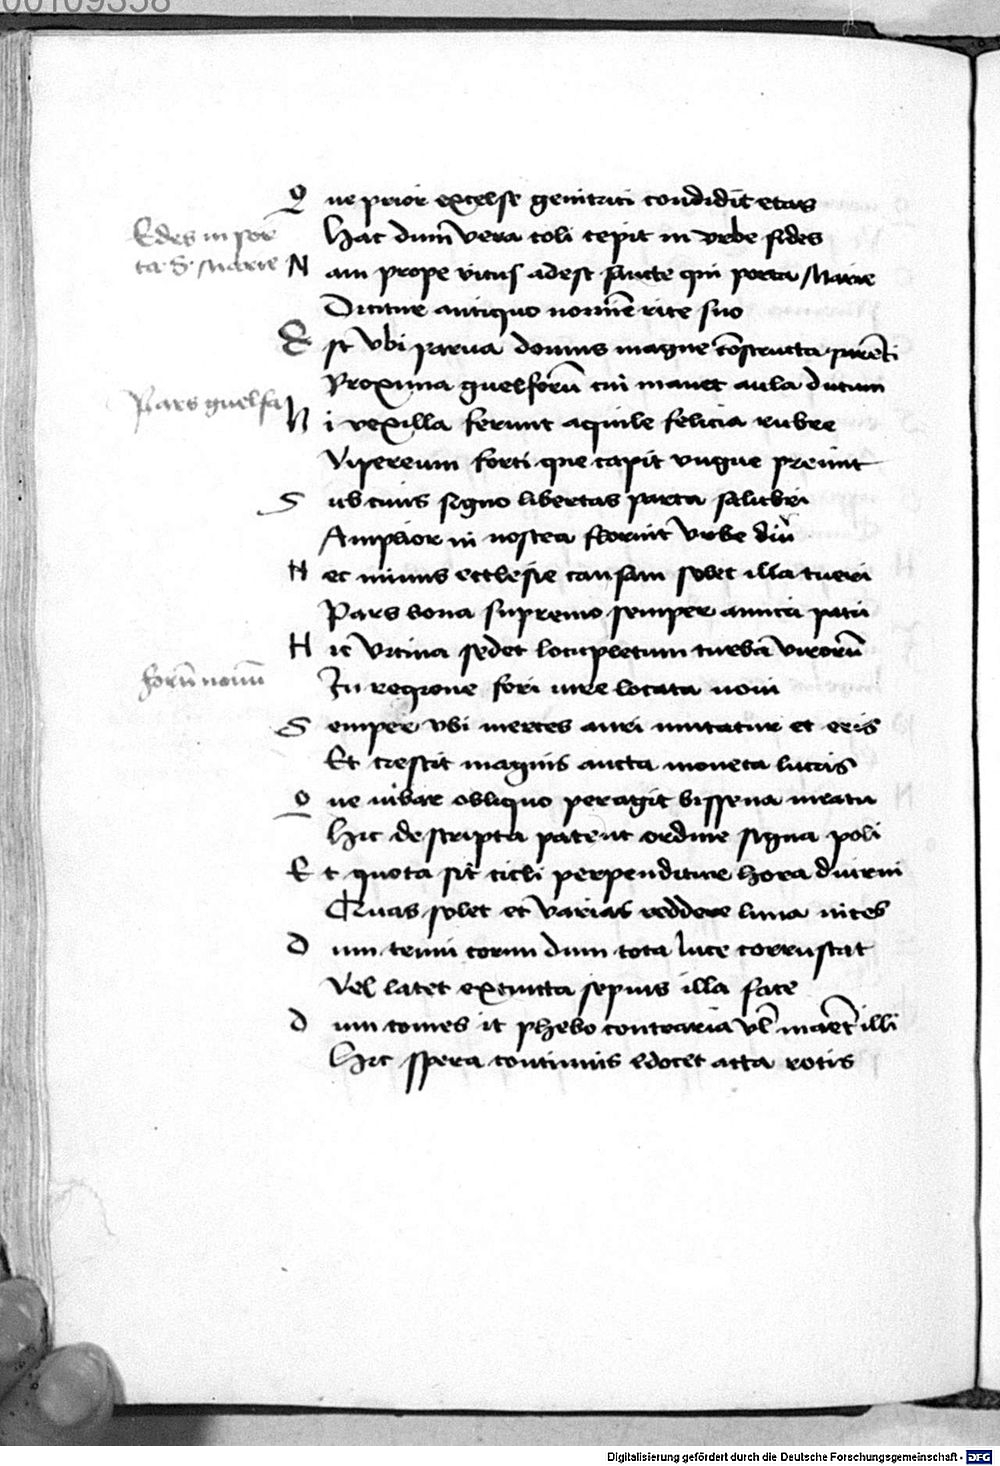 00109358
Que prior excelse genitrici condidit etas
Hac dum vera coli cepit in vrbe fides
Edes in por
ta S. Marie
Nam prope vicus adest sancte qui porta Marie
Dicitur antiquo nomine rite suo
Est vbi parua domus magne constructa parenti
Proxima guelforum cui manet aula ducum
Pars guelfa
Ni vexilla ferunt aquile felicia rubre
Vipereum forti que capit vngue premit
Sub cuius signo libertas parta salubri
Amplior in nostra floruit vrbe diu
Nec minus ecclesie causam solet illa tueri
Pars bona supremo semper amica patri
Hic vicina sedet locupletum turba virorum
forum nouum
In regione fori iure locata noui
Semper vbi merces auri mutatur et eris
Et crescit magnis aucta moneta lucris
Que iubar obliquo peragit bissena meatu
Hic descripta patent ordine signa poli
Et quota sit cicli perpenditur hora diurni
Quas solet et varias reddere luna vices
Dum tenui cornu dum tota luce corruscat
Vel latet extincta sepius illa face
Dum comes it phebo contraria vel manet illi
Hic spera continuis edocet acta rotis
Digitalisierung gefördert durch die Deutsche Forschungsgemeinschaft - DFG